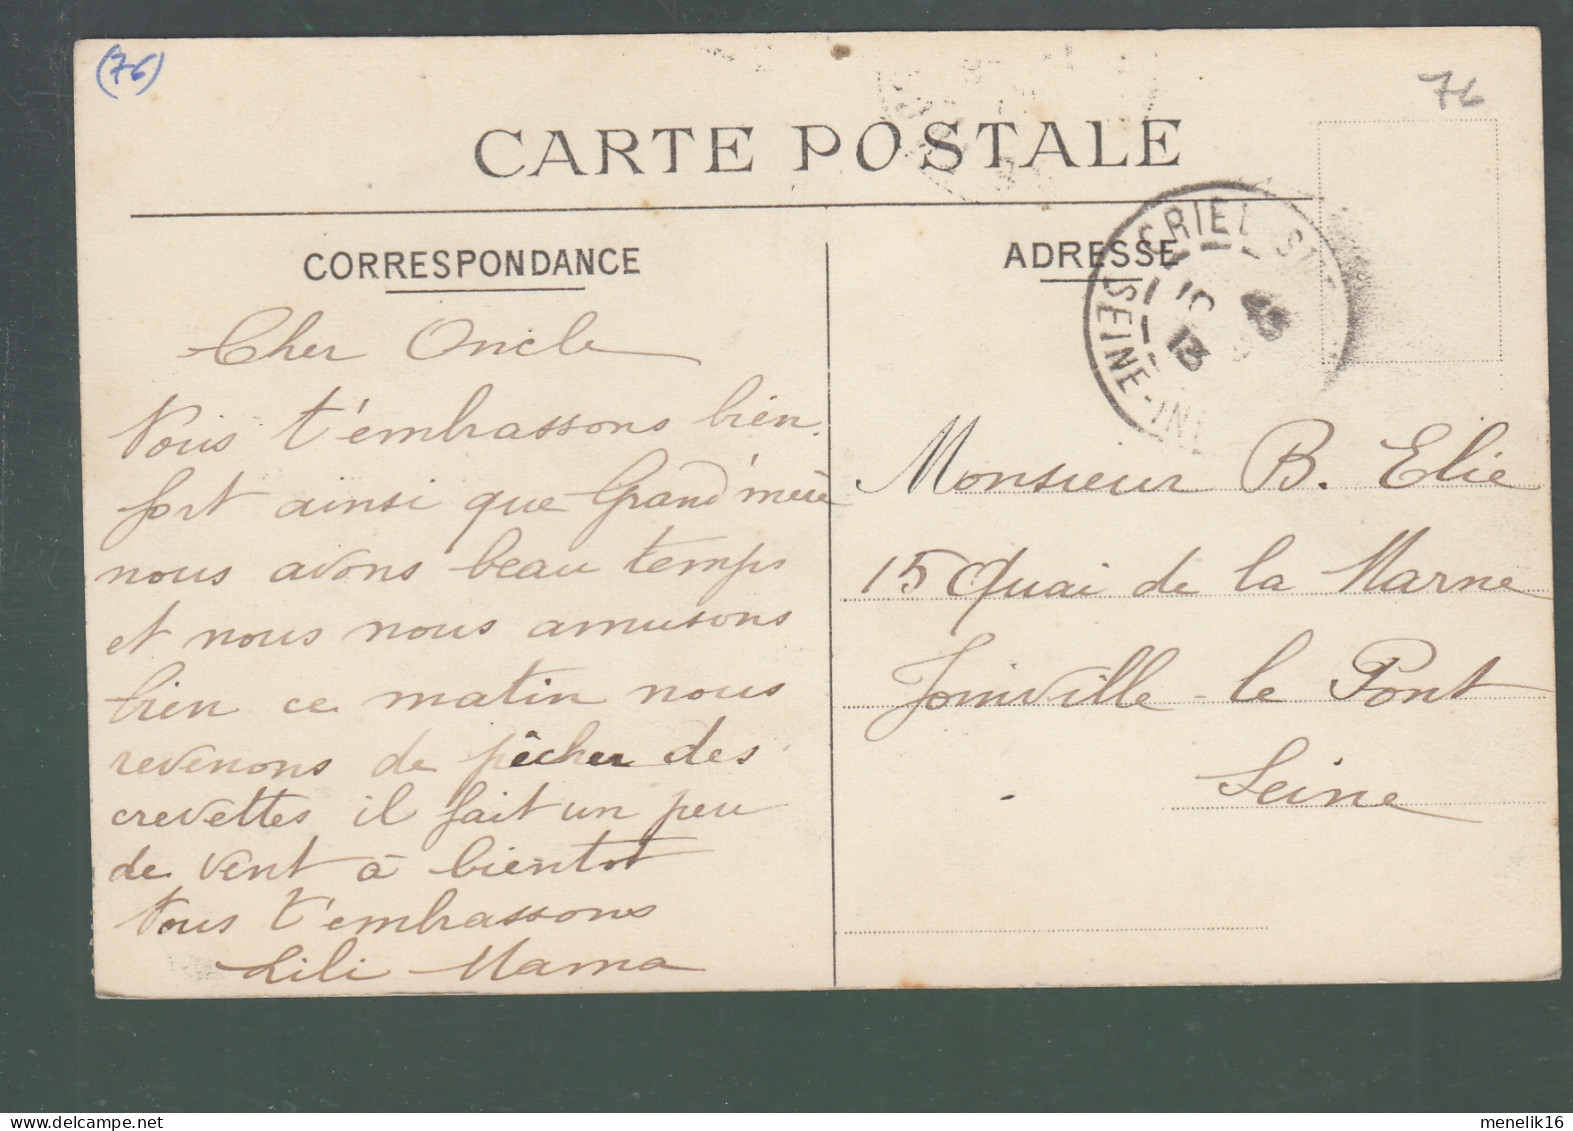 (76)
76
CARTE POSTALE
CORRESPONDANCE
ADRESSE
CRIEL S
SEINE-INF
13
Cher Oncle
Nous t'embrassons bien
fort ainsi que Grand'mère
nous avons beau temps
et nous nous amusons
bien ce matin nous
revenons de pêcher des
crevettes il fait un peu
de vent à bientot
Nous t'embrassons
Lili Mama
Monsieur B. Elie
15 Quai de la Marne
Joinville-le Pont
Seine
menelik16